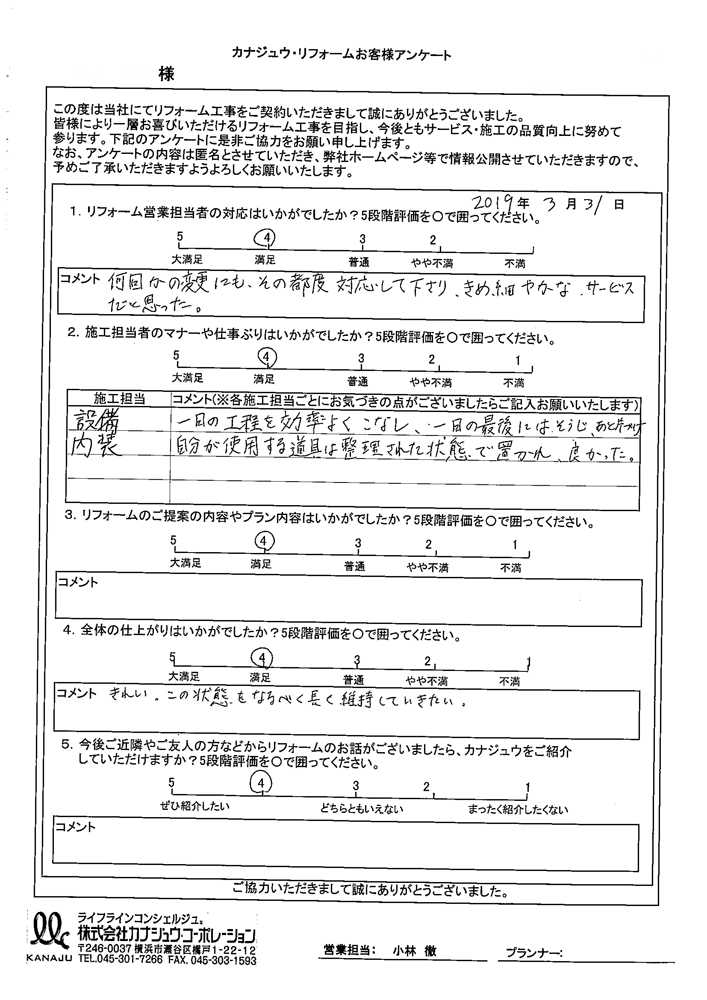 カナジュウ・リフォームお客様アンケート
様
この度は当社にてリフォーム工事をご契約いただきまして誠にありがとうございました。
皆様により一層お喜びいただけるリフォーム工事を目指し、今後ともサービス・施工の品質向上に努めて
参ります。下記のアンケートに是非ご協力をお願い申し上げます。
なお、アンケートの内容は匿名とさせていただき、弊社ホームページ等で情報公開させていただきますので、
予めご了承いただきますようよろしくお願いいたします。
2019年 3月31日
1. リフォーム営業担当者の対応はいかがでしたか？5段階評価を〇で囲ってください。
5 4 3 2
大満足 満足 普通 やや不満 不満
コメント 何回かの変更にも、その都度対応して下さり、きめ細やかな サービス
だと思った。
2. 施工担当者のマナーや仕事ぶりはいかがでしたか？5段階評価を〇で囲ってください。
5 4 3 2 1
大満足 満足 普通 やや不満 不満
施工担当 コメント(※各施工担当ごとにお気づきの点がございましたらご記入お願いいたします)
設備 一日の工程を効率よくこなし、一日の最後には、そうじ、あと片づけ
内装 自分が使用する道具は整理された状態で置かれ、良かった。
3. リフォームのご提案の内容やプラン内容はいかがでしたか？5段階評価を〇で囲ってください。
5 4 3 2 1
大満足 満足 普通 やや不満 不満
コメント
4. 全体の仕上がりはいかがでしたか？5段階評価を〇で囲ってください。
5 4 3 2 1
大満足 満足 普通 やや不満 不満
コメント きれい。この状態をなるべく長く維持していきたい。
5. 今後ご近隣やご友人の方などからリフォームのお話がございましたら、カナジュウをご紹介
していただけますか？5段階評価を〇で囲ってください。
5 4 3 2 1
ぜひ紹介したい どちらともいえない まったく紹介したくない
コメント
ご協力いただきまして誠にありがとうございました。
ライフラインコンシェルジュ。
株式会社カナジュウ・コーポレーション
〒246-0037 横浜市瀬谷区橋戸1-22-12
KANAJU TEL.045-301-7266 FAX.045-303-1593
営業担当: 小林 徹 プランナー: